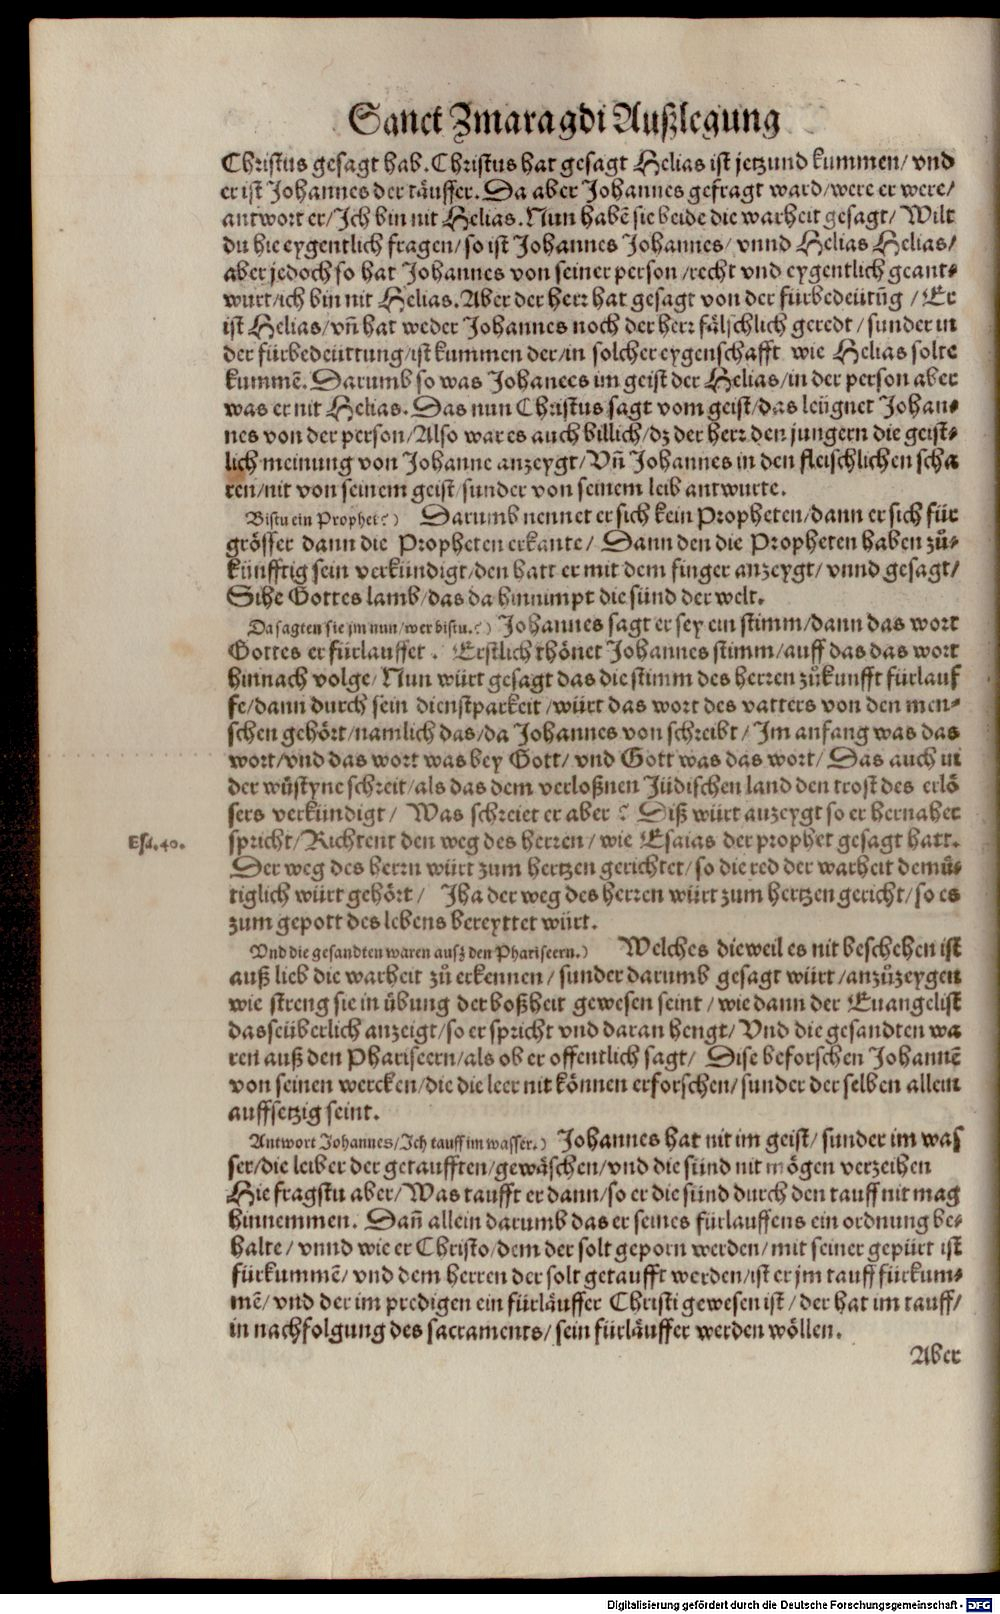 Sanct Zmaragdi Außlegung
Christus gesagt hab. Christus hat gesagt Helias ist jetzund kummen/ vnd
er ist Johannes der täuffer. Da aber Johannes gefragt ward/were er were/
antwort er/Ich bin nit Helias. Nun habē sie beide die warheit gesagt/ Wilt
du hie eygentlich fragen/ so ist Johannes Johannes/ vnnd Helias Helias/
aber jedoch so hat Johannes von seiner person /recht vnd eygentlich geant-
wurt/ich bin nit Helias. Aber der herr hat gesagt von der fürbedeütūg / Er
ist Helias/vn̄ hat weder Johannes noch der herr fälschlich geredt / sunder in
der fürbedeüttung/ist kummen der/in solcher eygenschafft wie Helias solte
kummē. Darumb so was Johanees im geist der Helias/in der person aber
was er nit Helias. Das nun Christus sagt vom geist/das leügnet Johan-
nes von der person/Also war es auch billich/dz der herr den jungern die geist-
lich meinung von Johanne anzeygt/Vn̄ Johannes in den fleischlichen scha
ren/nit von seinem geist/sunder von seinem leib antwurte.
Bistu ein Prophet?) Darumb nennet er sich kein Propheten/dann er sich für
grösser dann die Propheten erkante/ Dann den die Propheten haben zů-
künfftig sein verkündigt/den hatt er mit dem finger anzeygt/ vnnd gesagt/
Sihe Gottes lamb/das da hinnimpt die sünd der welt.
Da sagten sie jm nun/wer bistu.?) Johannes sagt er sey ein stimm/dann das wort
Gottes er fürlauffet. Erstlich thönet Johannes stimm/auff das das wort
hinnach volge/ Nun würt gesagt das die stimm des herren zůkunfft fürlauf
fe/dann durch sein dienstparkeit /würt das wort des vatters von den men-
schen gehört/namlich das/da Johannes von schreibt/ Im anfang was das
wort/vnd das wort was bey Gott/ vnd Gott was das wort/ Das auch in
der wüstyne schreit/als das dem verloßnen Jüdischen land den trost des erlö
sers verkündigt/ Was schreiet er aber? Diß würt anzeygt so er hernaher
Esa.40.
spricht/Richtent den weg des herren/ wie Esaias der prophet gesagt hatt.
Der weg des herrn würt zum hertzen gerichtet/so die red der warheit demů-
tiglich würt gehört/ Jha der weg des herren würt zum hertzen gericht/so es
zum gepott des lebens bereyttet würt.
Vnd die gesandten waren ausz den Phariseern.) Welches dieweil es nit beschehen ist
auß lieb die warheit zů erkennen/ sunder darumb gesagt würt/anzůzeygen
wie streng sie in übung der boßheit gewesen seint/ wie dann der Euangelist
das seüberlich anzeigt/so er spricht vnd daran hengt/ Vnd die gesandten wa
ren auß den Phariseern/als ob er offentlich sagt/ Dise beforschen Johannē
von seinen wercken/die die leer nit können erforschen/sunder der selben allein
auffsetzig seint.
Antwort Johannes/Ich tauff im wasser.) Johannes hat nit im geist/ sunder im was
ser/die leiber der getaufften/gewäschen/vnd die sünd nit mögen verzeihen
Hie fragstu aber/Was taufft er dann/so er die sünd durch den tauff nit mag
hinnemmen. Dan̄ allein darumb das er seines fürlauffens ein ordnung be-
halte/ vnnd wie er Christo/dem der solt geporn werden/mit seiner gepürt ist
fürkummē/ vnd dem herren der solt getaufft werden/ist er jm tauff fürkum-
mē/ vnd der im predigen ein fürläuffer Christi gewesen ist/ der hat im tauff/
in nachfolgung des sacraments/ sein fürläuffer werden wöllen.
Aber
Digitalisierung gefördert durch die Deutsche Forschungsgemeinschaft - DFG